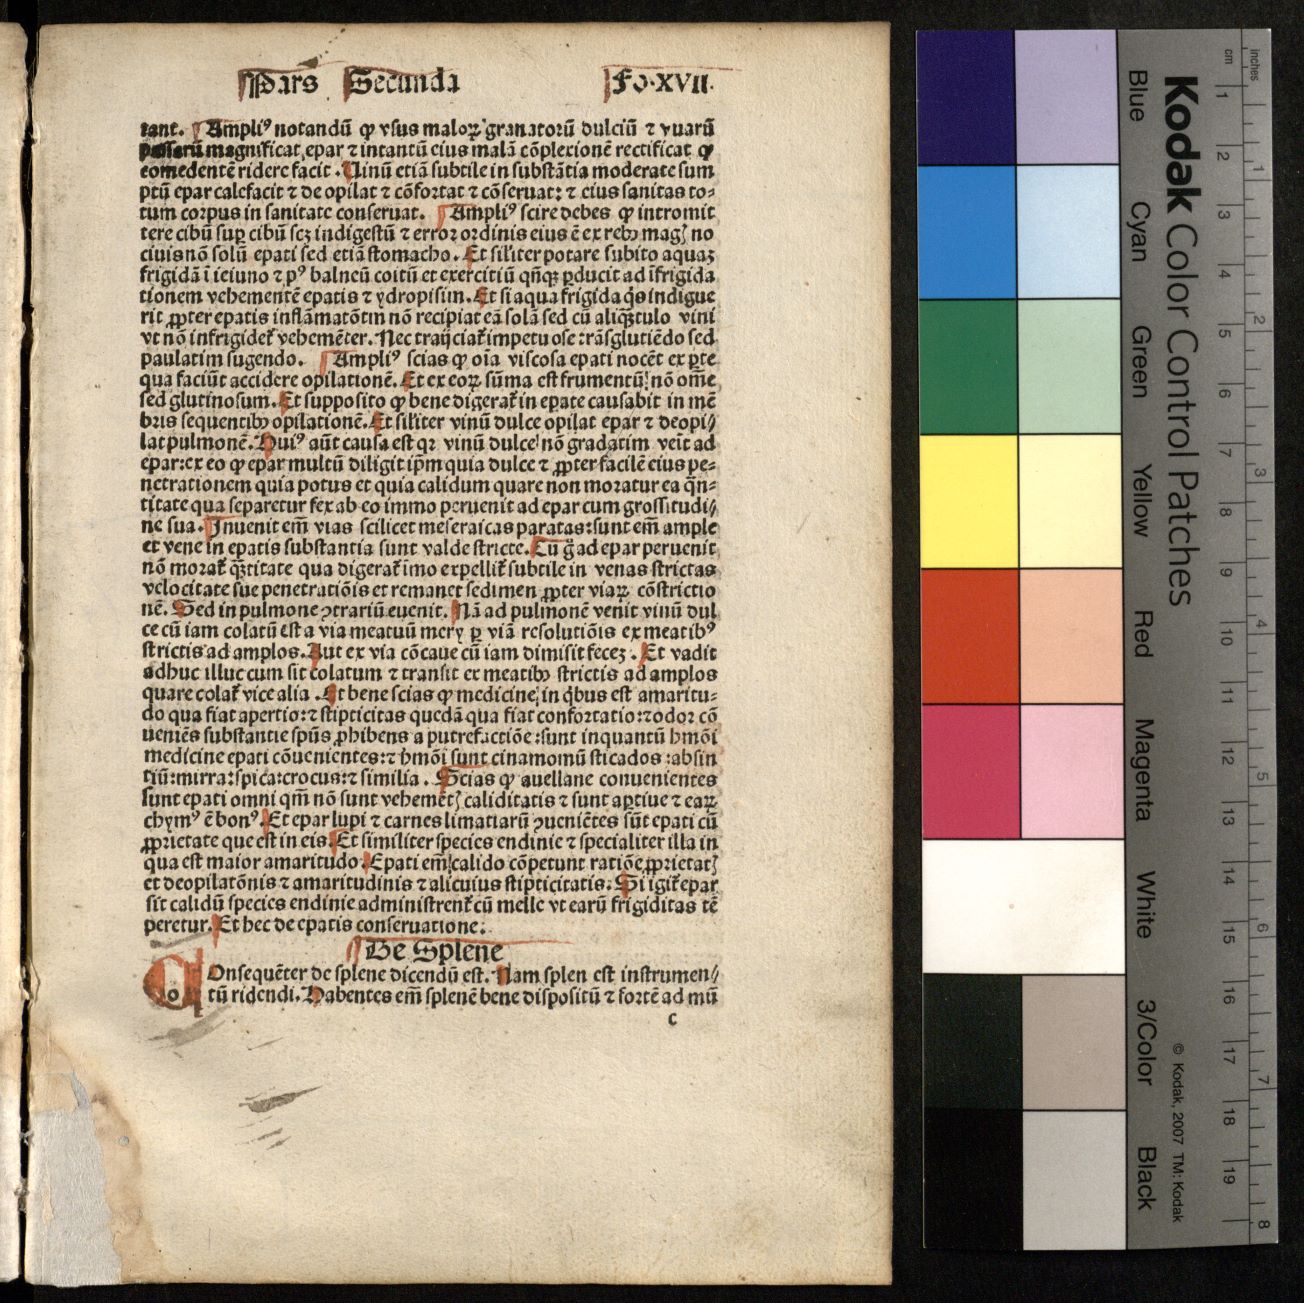 Pars Secunda Fo.XVII.
tant. Ampliꝰ notandū ꝙ vsus maloꝝ granatorū dulciū ⁊ vuarū
passarū magnificat epar ⁊ intantū eius malā cōplexionē rectificat ꝙ
comedentē ridere facit. Uinū etiā subtile in substātia moderate sum
ptū epar calefacit ⁊ de opilat ⁊ cōfortat ⁊ cōseruat: ⁊ eius sanitas to-
tum corpus in sanitate conseruat. Ampliꝰ scire debes ꝙ intromit
tere cibū sup cibū scꝫ indigestū ⁊ error ordinis eius ē ex rebꝰ magꝭ no
ciuis nō solū epati sed etiā stomacho. Et siliter potare subito aquaꝫ
frigidā ī ieiuno ⁊ pꝰ balneū coitū et exercitiū qn̄qꝫ ꝑducit ad īfrigida
tionem vehementē epatis ⁊ ydropisim. Et si aqua frigida q̇s indigue
rit ꝓpter epatis inflāmatōem nō recipiat eā solā sed cū aliq̄tulo vini
vt nō infrigidet᷑ vehemēter. Nec traijciat᷑ impetuose: trāsglutiēdo sed
paulatim sugendo. Ampliꝰ scias ꝙ oīa viscosa epati nocēt ex ꝑte
qua faciūt accidere opilationē. Et ex eoꝝ sūma est frumentū nō om̄e
sed glutinosum. Et supposito ꝙ bene digerat᷑ in epate causabit in mē
bris sequentibꝰ opilationē. Et siliter vinū dulce opilat epar ⁊ deopi/
lat pulmonē. Huiꝰ aūt causa est qꝛ vinū dulce nō gradatim veīt ad
epar: ex eo ꝙ epar multū diligit ip̄m quia dulce ⁊ ꝓpter facilē eius pe-
netrationem quia potus et quia calidum quare non moratur ea q̄n-
titate qua separetur fex ab eo immo peruenit ad epar cum grossitudi/
ne sua. Inuenit em̄ vias scilicet meseraicas paratas: sunt em̄ ample
et vene in epatis substantia sunt valde stricte. Cū g̊ ad epar peruenit
nō morat᷑ q̄titate qua digerat᷑ imo expellit᷑ subtile in venas strictas
velocitate sue penetratiōis et remanet sedimen ꝓpter viaꝝ cōstrictio
nē. Sed in pulmone ꝯtrariū euenit. Nā ad pulmonē venit vinū dul
ce cū iam colatū est a via meatuū mery ꝑ viā resolutiōis ex meatibꝰ
strictis ad amplos. Aut ex via cōcaue cū iam dimisit feceꝫ. Et vadit
adhuc illuc cum sit colatum ⁊ transit ex meatibꝰ strictis ad amplos
quare colat᷑ vice alia. Et bene scias ꝙ medicine in q̇bus est amaritu-
do qua fiat apertio: ⁊ stipticitas quedā qua fiat confortatio: ⁊ odor cō
ueniēs substantie spūs ꝓhibens a putrefactiōe: sunt inquantū hmōi
medicine epati cōuenientes: ⁊ hmōi sunt cinamomū sticados: absin
tiū: mirra: spica: crocus: ⁊ similia. Scias ꝙ auellane conuenientes
sunt epati omni qm̄ nō sunt vehemētꝭ caliditatis ⁊ sunt aꝑtiue ⁊ eaꝝ
chymꝰ ē bonꝰ. Et epar lupi ⁊ carnes limatiarū ꝯueniētes sūt epati cū
ꝓprietate que est in eis. Et similiter species endinie ⁊ specialiter illa in
qua est maior amaritudo. Epati em̄ calido cōpetunt ratiōe ꝓprietatꝭ
et deopilatōnis ⁊ amaritudinis ⁊ alicuius stipticitatis. Si igit᷑ epar
sit calidū species endinie administrent᷑ cū melle vt earū frigiditas tē
peretur. Et hec de epatis conseruatione.
De Splene
COnsequēter de splene dicendū est. Nam splen est instrumen/
tū ridendi. Habentes em̄ splenē bene dispositū ⁊ fortē ad mū
c
Kodak Color Control Patches
Blue
Cyan
Green
Yellow
Red
Magenta
White
3/Color
Black
© Kodak, 2007 TM: Kodak
cm 1 2 3 4 5 6 7 8 9 10 11 12 13 14 15 16 17 18 19
inches 1 2 3 4 5 6 7 8